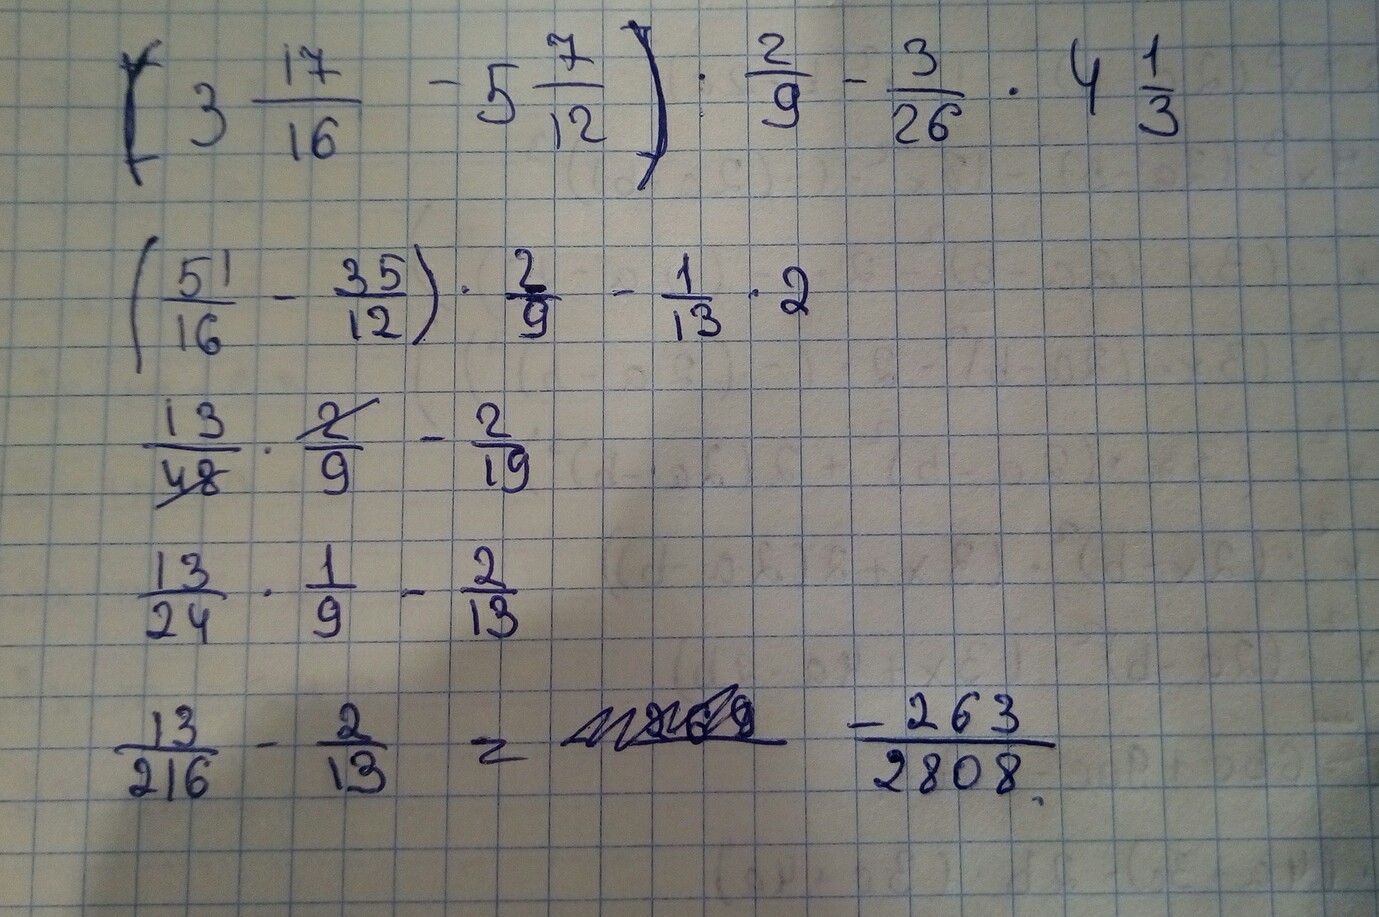 (3 17/16 - 5 7/12) : 2/9 - 3/26 · 4 1/3
(51/16 - 35/12) · 2/9 - 1/13 · 2
13/48 · 2/9 - 2/19
13/24 · 1/9 - 2/13
13/216 - 2/13 = -263/2808.